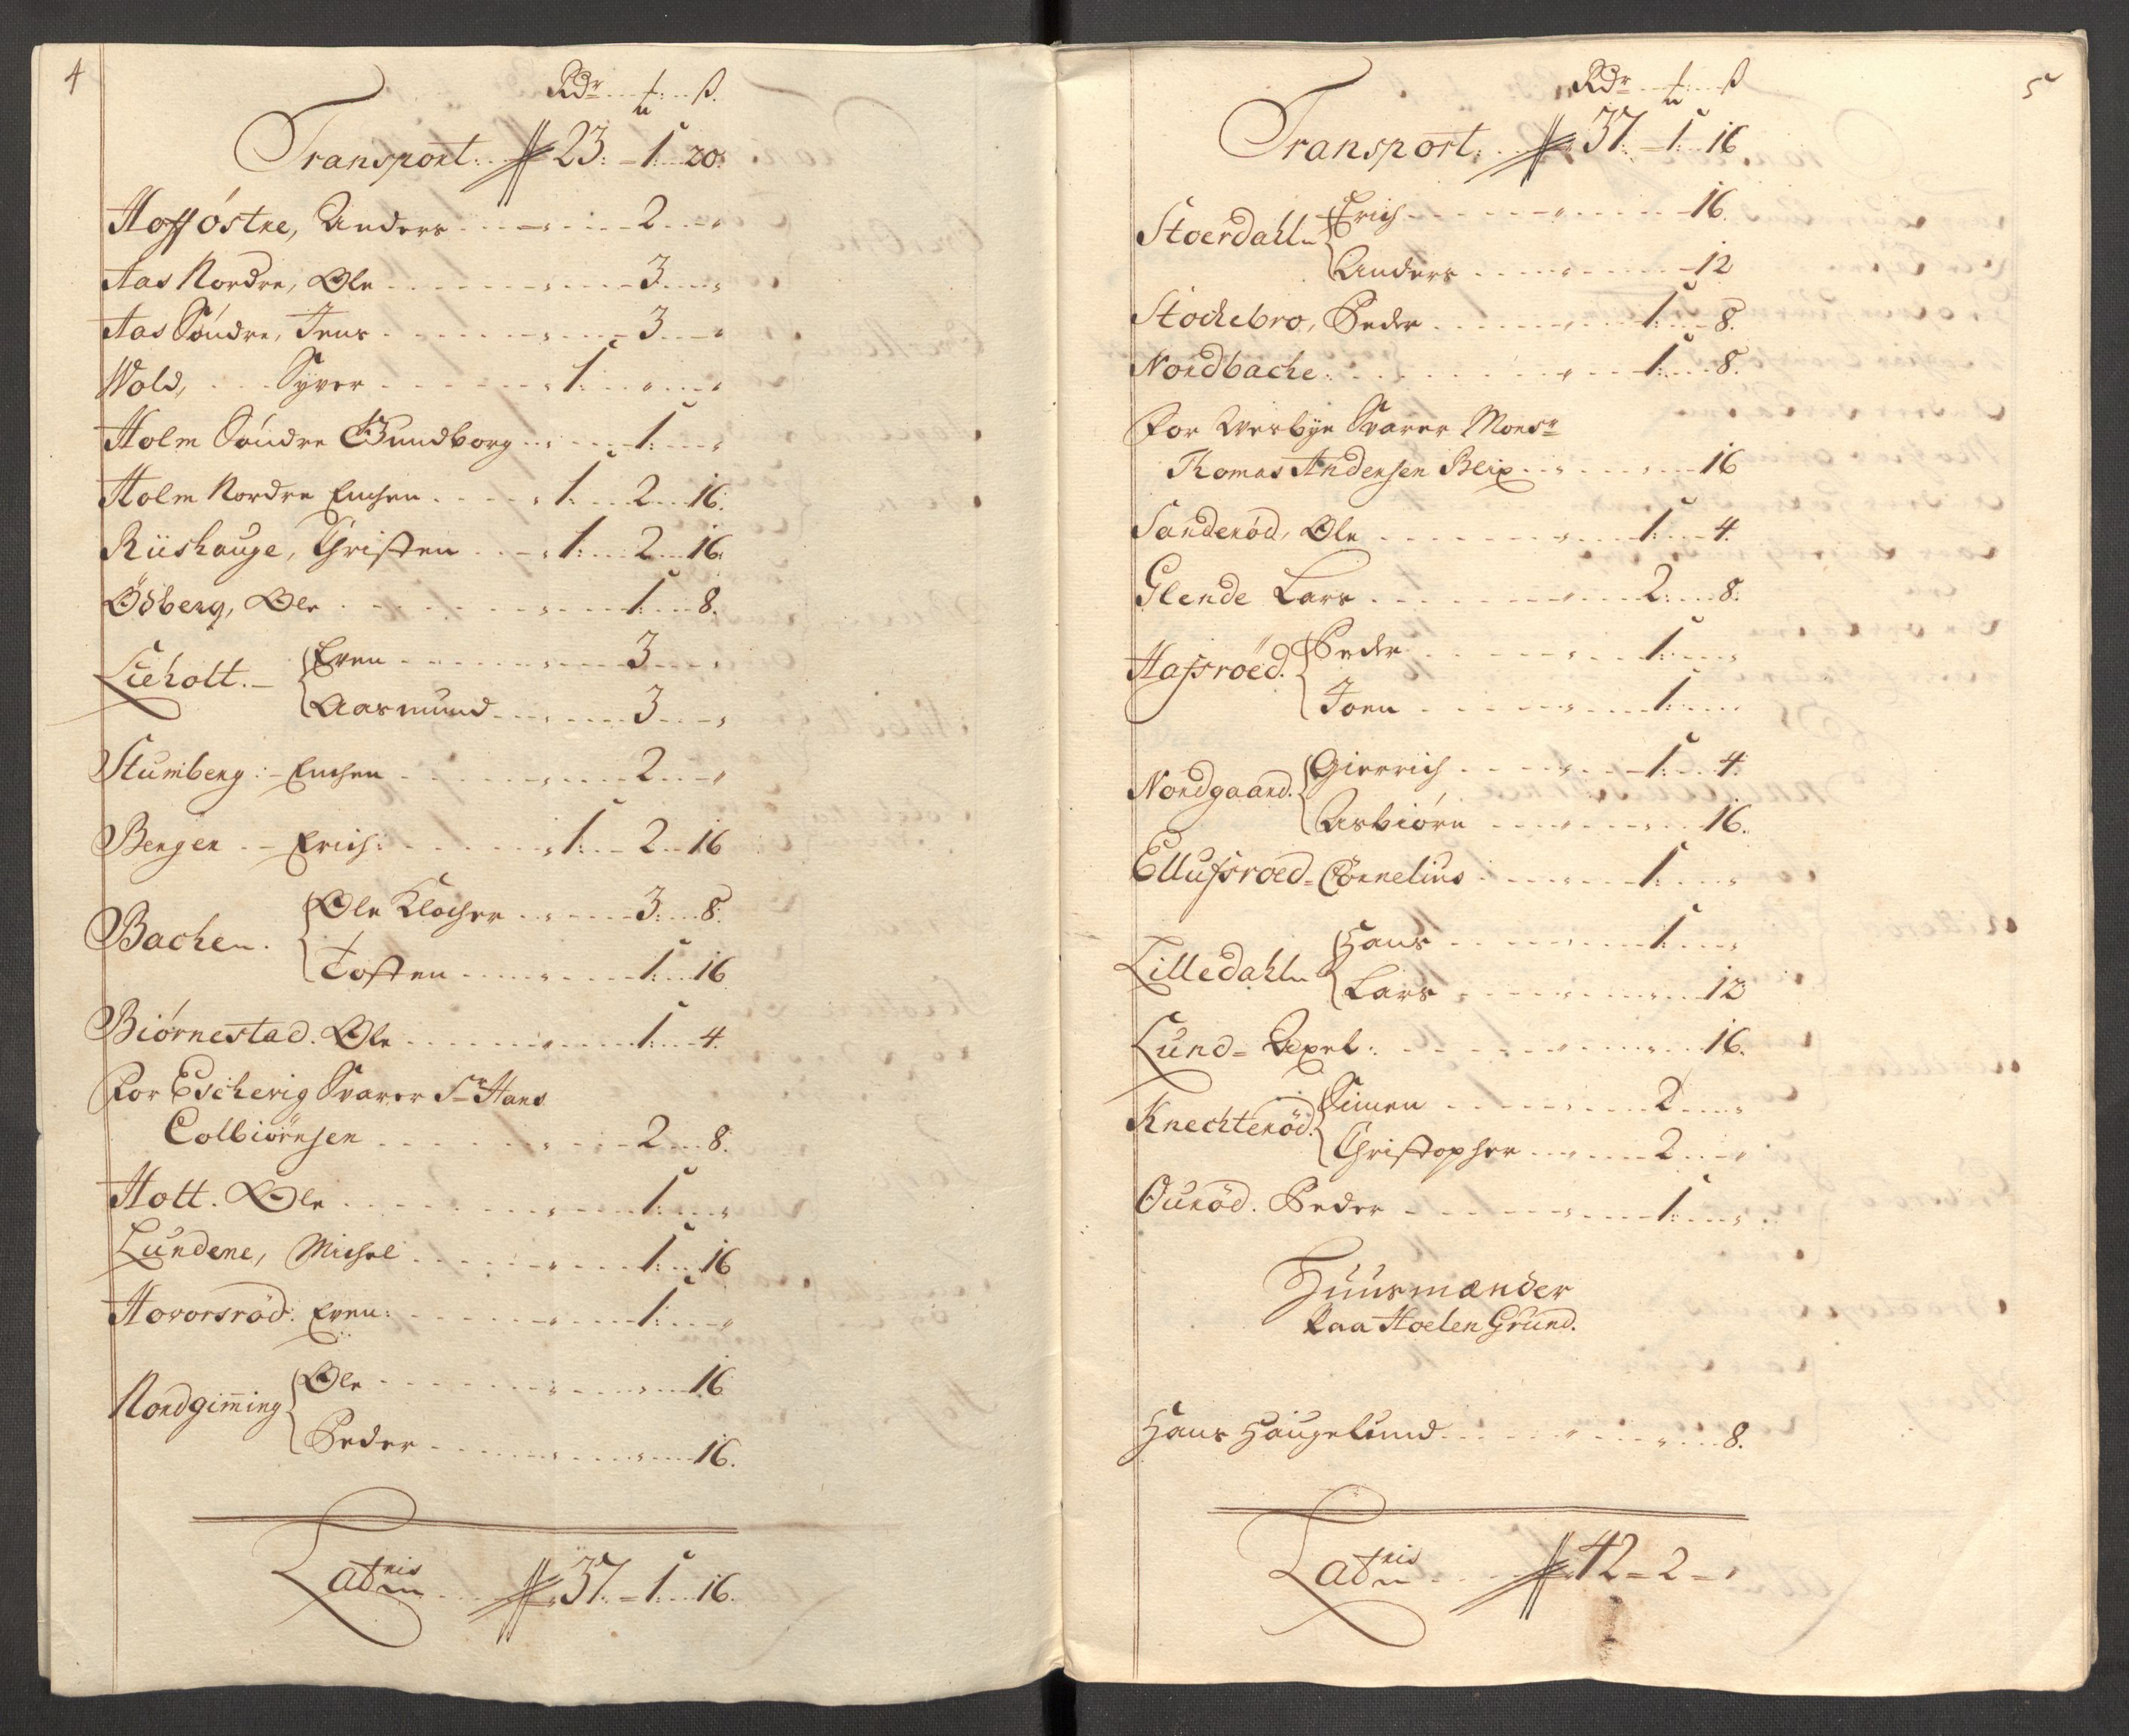 4
Rdr . . ß.
Transport: 23: - 1: 20:
Hoff östre, Anders - 2 -
Aas Nordre, Ole - 3 -
Aas Söndre, Jens - 3 -
Wold, Syver 1: - -
Holm Söndre Gundborg - 1: -
Holm Nordre Enchen 1: 2 16:
Riishauge, Christen 1: 2 16:
Ödberg, Ole - 1: 8.
Lieholt. - { Even - 3 -
Aasmund - 3 -
Stumberg: - Enchen - 2 -
Berger - Erich: 1: 2 16
Bachen. { Ole Klocher - 3: 8.
Tosten - 1: 16
Biörnestad. Ole - 1: 4.
For Escherig Svarer Sr Hans
Colbiörnsen - 2 8.
Holt. Ole - 1: -
Lundene, Michel - 1: 16
Hovorsröd: Even: - 1: -
Nordgiming { Ole - - 16
Peder - - 16.
Latris 37. - 1: 16.
5
Rdr . . ß
Transport: 37: - 1: 16
Stoerdahln { Erich - - 16.
Anders - - 12
Stochebro, Peder - 1: 8.
Nordbache: - 1: 8.
For Werbye Svarer Monsr
Thomas Andersen Blix - - 16
Sanderöd, Ole - 1: 4.
Glende Lars - 2: 8.
Hafsröed. { Peder - 1: -
Joen - 1: -
Nordgaard. { Gierrich - 1: 4.
Asbiörn - - 16.
Ellufsroed - Cornelius - 1: -
Lilledahln { Hans - 1: -
Lars - - 12
Lund = Axel: - - 16.
Knechteröd: { Simen - 2 -
Christopher - 2 -
Ouröd. Peder - 1: -
Huusmænder
Paa Hoelen Grund.
Hans Haugelund - - 8.
Latris 42 - 2 -